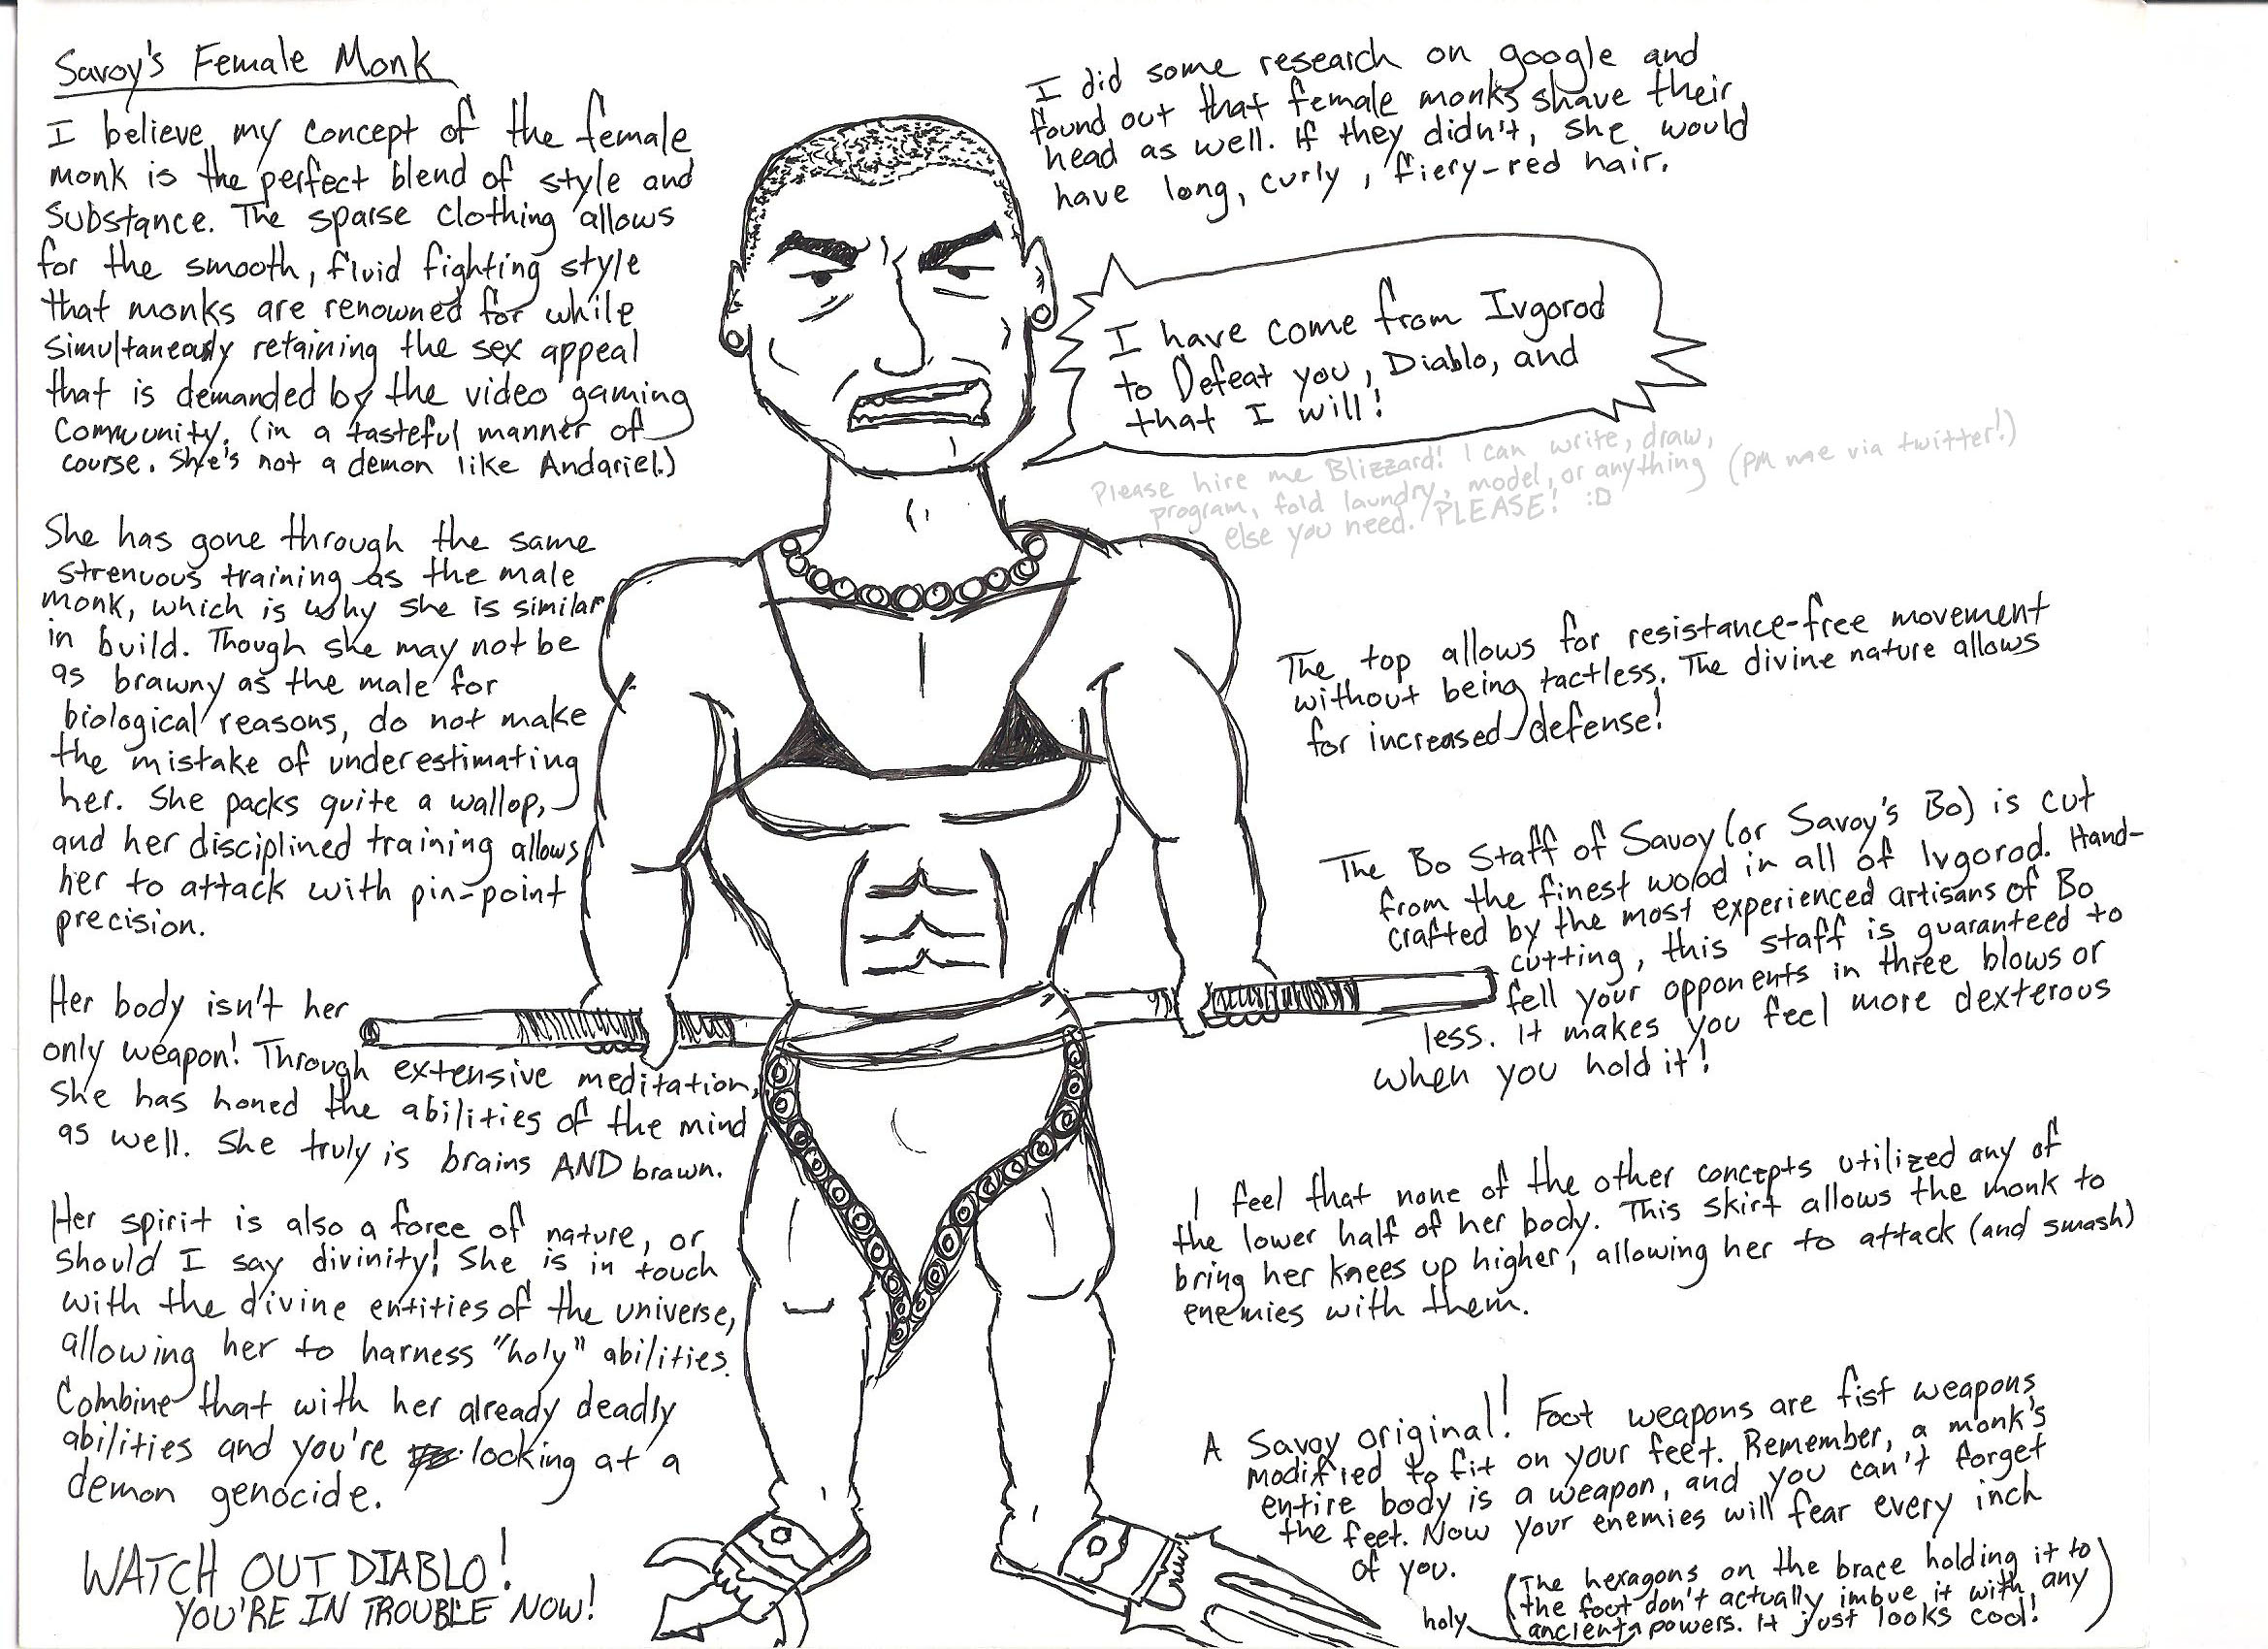 Savoy's Female Monk
I believe my concept of the female
monk is the perfect blend of style and
substance. The sparse clothing allows
for the smooth, fluid fighting style
that monks are renowned for while
simultaneously retaining the sex appeal
that is demanded by the video gaming
community. (in a tasteful manner of
course. She's not a demon like Andariel.)
She has gone through the same
strenuous training as the male
monk, which is why she is similar
in build. Though she may not be
as brawny as the male for
biological reasons, do not make
the mistake of underestimating
her. She packs quite a wallop,
and her disciplined training allows
her to attack with pin-point
precision.
Her body isn't her
only weapon! Through extensive meditation,
she has honed the abilities of the mind
as well. She truly is brains AND brawn.
Her spirit is also a force of nature, or
should I say divinity! She is in touch
with the divine entities of the universe,
allowing her to harness "holy" abilities.
Combine that with her already deadly
abilities and you're looking at a
demon genocide.
WATCH OUT DIABLO!
YOU'RE IN TROUBLE NOW!
I did some research on google and
found out that female monks shave their
head as well. If they didn't, she would
have long, curly, fiery-red hair.
I have come from Ivgorod
to Defeat you, Diablo, and
that I will!
Please hire me Blizzard! I can write, draw,
program, fold laundry, model, or anything (PM me via twitter!)
else you need. PLEASE! :D
The top allows for resistance-free movement
without being tactless. The divine nature allows
for increased defense!
The Bo Staff of Savoy (or Savoy's Bo) is cut
from the finest wood in all of Ivgorod. Hand-
crafted by the most experienced artisans of Bo
cutting, this staff is guaranteed to
fell your opponents in three blows or
less. It makes you feel more dexterous
when you hold it!
I feel that none of the other concepts utilized any of
the lower half of her body. This skirt allows the monk to
bring her knees up higher, allowing her to attack (and smash)
enemies with them.
A Savoy original! Foot weapons are fist weapons
modified to fit on your feet. Remember, a monk's
entire body is a weapon, and you can't forget
the feet. Now your enemies will fear every inch
of you.
(The hexagons on the brace holding it to
the foot don't actually imbue it with any
holy ancient powers. It just looks cool!)